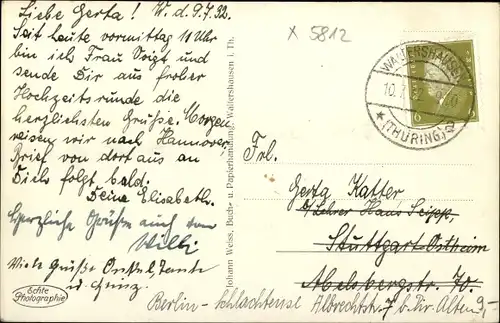 Liebe Gerta! W. d. 9.7.32.
Seit heute vormittag 11 Uhr
bin ich Frau Voigt und
sende Dir aus froher
Hochzeitsrunde die
herzlichsten Grüße. Morgen
reisen wir nach Hannover.
Brief von dort aus an
Dich folgt bald.
Deine Elisabeth.
Herzliche Grüße auch von
Willi
Viele Grüße Onkel, Tante
u. Heinz.
Echte
Photographie
Johann Weiss, Buch- u. Papierhandlung, Waltershausen i. Th.
X 5812
WALTERSHAUSEN
10.7.32
(THÜRING)
6 6
Frl.
Gerta Katter
b/ Lehrer Hans Seipp,
Stuttgart-Ostheim
Abelsbergstr. 70.
Berlin-Schlachtensee Albrechtstr. 7 b. Fr. Alten
9,-